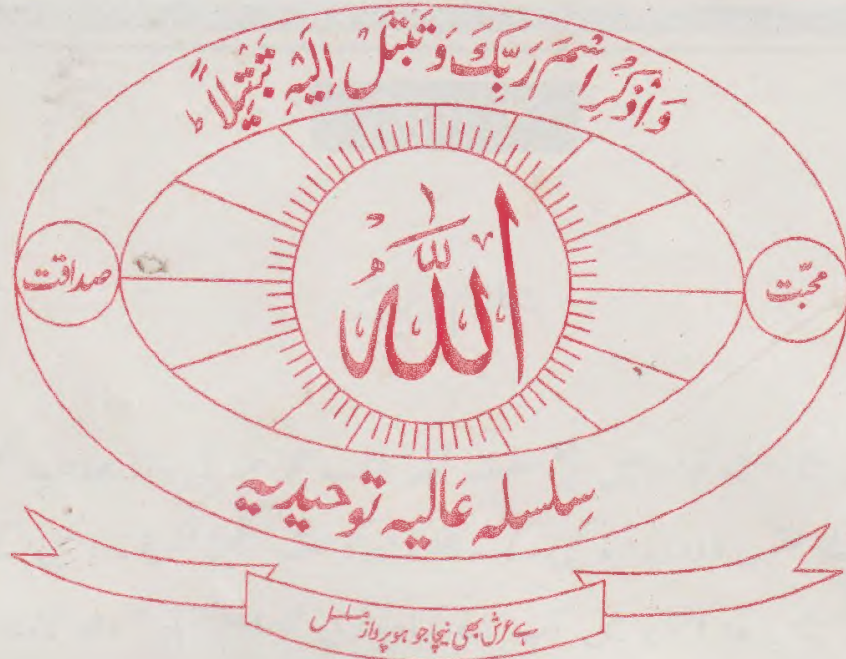 وَاذْكُرِ اسْمَ رَبِّكَ وَتَبَتَّلْ اِلَيْهِ تَبْتِيْلاً ط
محبّت
اللّٰه
صداقت
سِلسلہ عَالیہ توحیدیہ
ہے عرش بھی نیچا جو ہو پرواز مسلسل